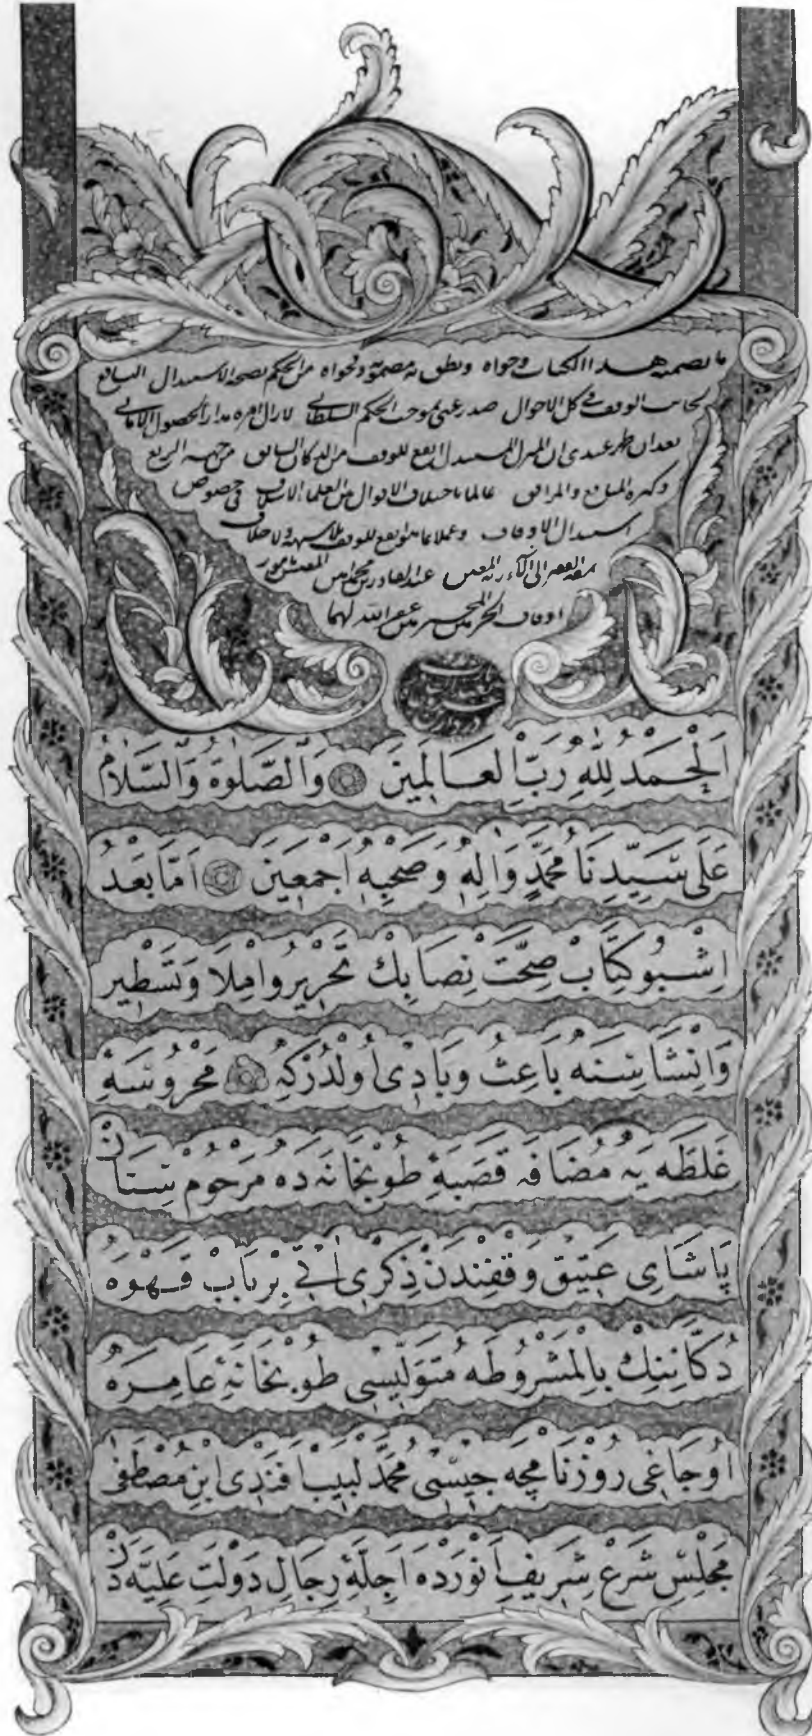 ما تضمنه هذا الكتاب وحواه ونطق به مضمونه وفحواه من الحكم بصحة الاستبدال النافع
لجانب الوقف في كل الاحوال صدر عني بموجب الحكم السلطاني لا زال امره مدارا لحصول الاماني
بعد ان ظهر عندي ان المنزل المستبدل انفع للوقف من الدكان السابق من جهة الريع
وكثرة المنافع والمرافق عالما باختلاف الاقوال من العلماء الاسلاف في خصوص
استبدال الاوقاف وعملا بما هو انفع للوقف بلا شبهة ولا خلاف
نمقه الفقير الى آلاء ربه المعين عبد القادر بن محمد امين المفتش بامور
اوقاف الحرمين المحترمين غفر الله لهما
اَلْحَمْدُ لِلّٰهِ رَبِّ الْعَالَمِينَ وَالصَّلٰوةُ وَالسَّلَامُ
عَلَى سَيِّدِنَا مُحَمَّدٍ وَاٰلِهِ وَصَحْبِهِ اَجْمَعِينَ اَمَّا بَعْدُ
اِشْبُو كِتَابْ صِحَّتْ نِصَابِكْ تَحْرِيرُ وَامْلَا وَتَسْطِير
وَانْشَاسِنَهْ بَاعِثُ وَبَادِئ اُولْدُرْكِه مَحْرُوسَهٔ
غَلَطَه يَهْ مُضَافَه قَصَبَهٔ طُوبْخَانَه دَهْ مَرْحُومْ سِنَانْ
پَاشَاىِ عَتِيقْ وَقْفِنْدَنْ ذِكْرِى اٰتِى بِرْبَابْ قَهْوَهْ
دُكَّانِنِكْ بِالْمَشْرُوطَه مُتَوَلِّيسِى طُوبْخَانَهٔ عَامِرَهْ
اُوجَاغِى رُوزْنَامْچَه جِيسِى مُحَمَّدْ لَبِيبْ اَفَنْدِى ابْنِ مُصْطَفٰى
مَجْلِسِ شَرْعِ شَرِيفِ اَنْوَرْدَهْ اَجِلَّهٔ رِجَالِ دَوْلَتِ عَلِيَّهْ دَنْ